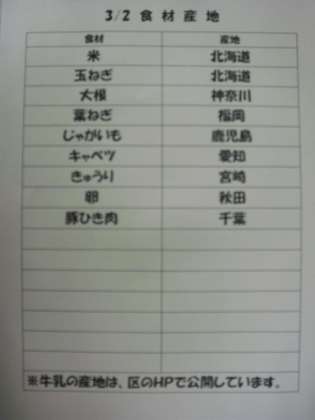 3/2 食材産地
食材 産地
米 北海道
玉ねぎ 北海道
大根 神奈川
葉ねぎ 福岡
じゃがいも 鹿児島
キャベツ 愛知
きゅうり 宮崎
卵 秋田
豚ひき肉 千葉
※牛乳の産地は、区のHPで公開しています。